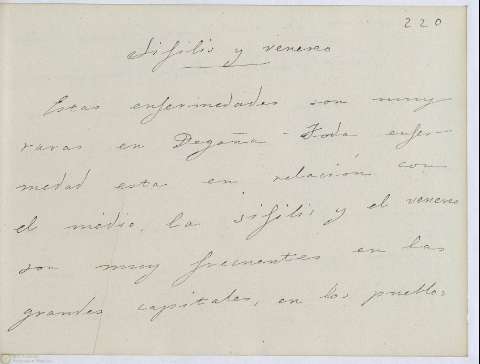 220
Sifilis y venereo
Estas enfermedades son muy
raras en Degaña - Toda enfer-
medad esta en relación con
el medio, la sifilis y el venereo
son muy frecuentes en las
grandes capitales, en los pueblos